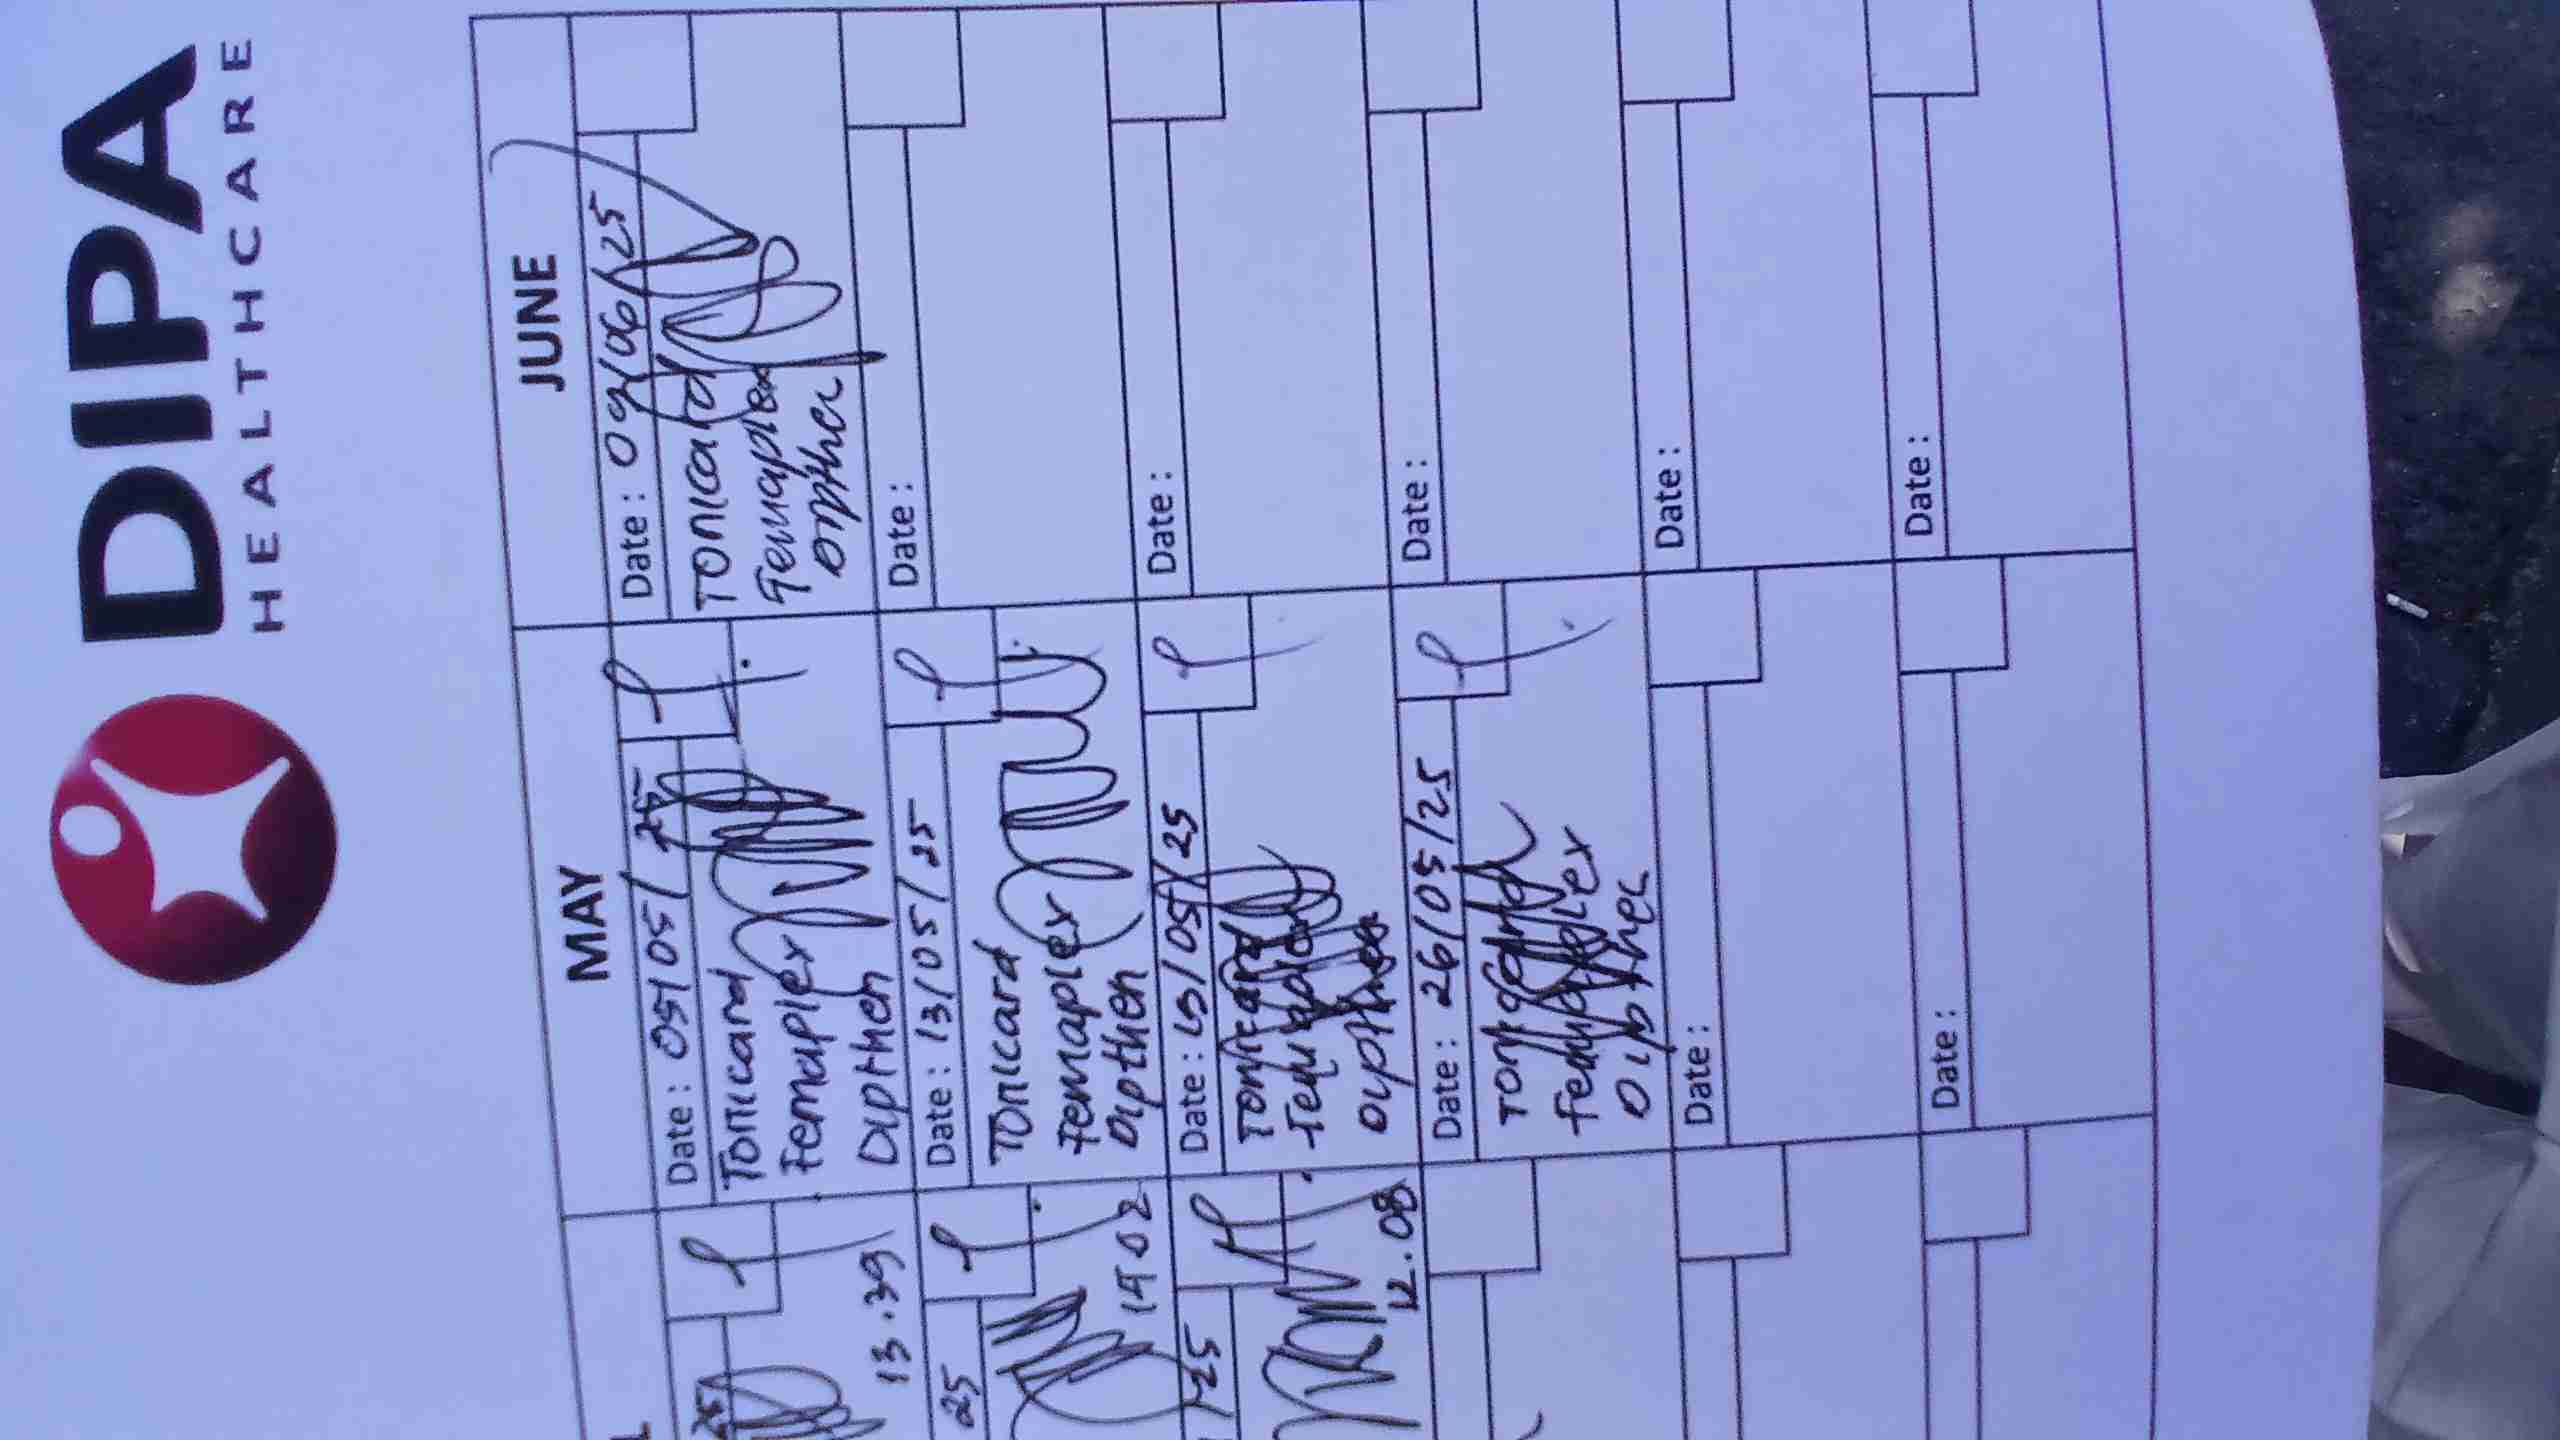 DIPA
HEALTHCARE
MAY
JUNE
Date : 05/05/25
Tonicard
Femaplex
Dipthen
13.39
Date : 09/06/25
Tonicard
Femaplex
25
Date : 13/05/25
Tonicard
Femaplex
Dipthen
14 02
Date :
/25
Date : 19/05/25
Tonicard
12.08
Date :
Date : 26/05/25
Femaplex
Date :
Date :
Date :
Date :
Date :